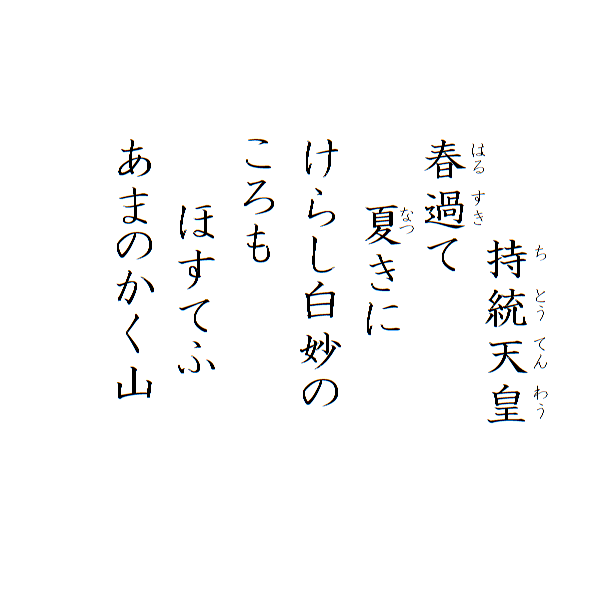 持統天皇
ち とう てん わう
春過て
はる すき
夏きに
なつ
けらし白妙の
ころも
ほすてふ
あまのかく山